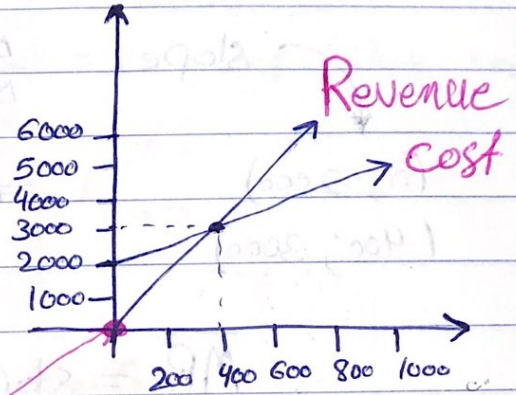 Revenue
cost
6000
5000
4000
3000
2000
1000
200 400 600 800 1000